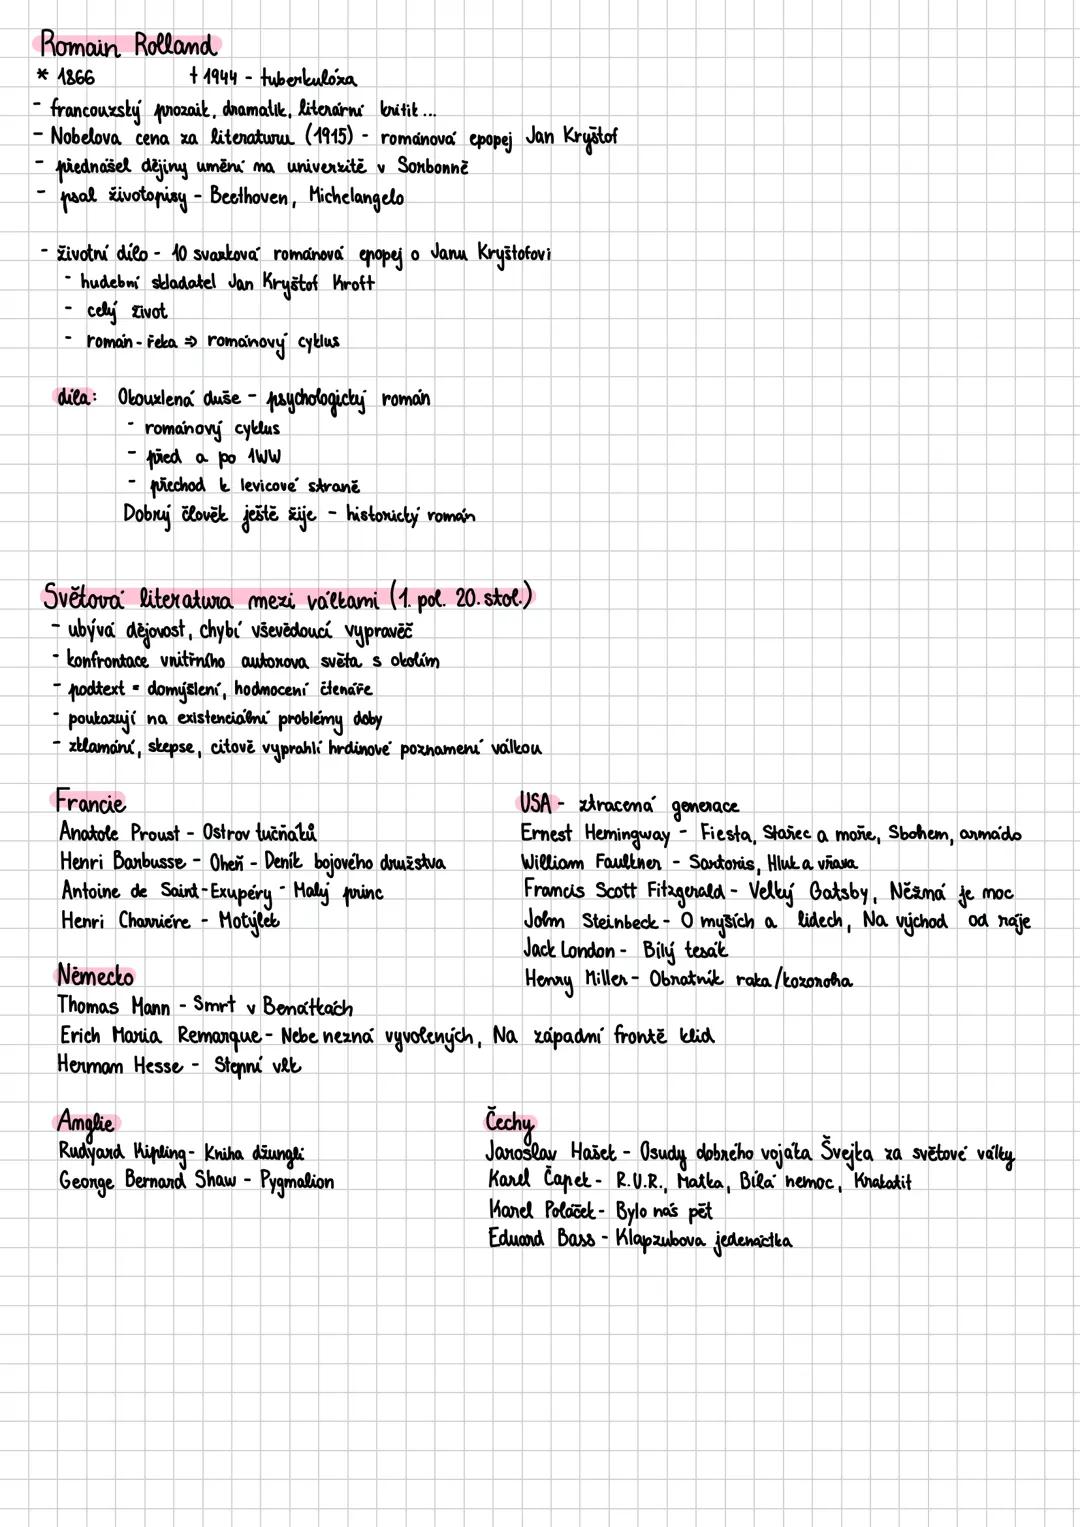 Romain Rolland
* 1866 † 1944 - tuberkulóza
- francouzský prozaik, dramatik, literární kritik...
- Nobelova cena za literaturu (1915) - románová epopej Jan Kryštof
- přednášel dějiny umění na univerzitě v Sorbonně
- psal životopisy - Beethoven, Michelangelo
- životní dílo - 10 svazková románová epopej o Janu Kryštofovi
- hudební skladatel Jan Kryštof Kroft
- celý život
- román-řeka ⇒ románový cyklus
díla: Okouzlená duše - psychologický román
- románový cyklus
- před a po 1WW
- přechod k levicové straně
Dobrý člověk ještě žije - historický román
Světová literatura mezi válkami (1. pol. 20. stol.)
- ubývá dějovost, chybí vševědoucí vypravěč
- konfrontace vnitřního autorova světa s okolím
- podtext = domýšlení, hodnocení čtenáře
- poukazují na existenciální problémy doby
- zklamání, skepse, citově vyprahlí hrdinové poznamení válkou
Francie
Anatole Proust - Ostrov tučňáků
Henri Barbusse - Oheň - Deník bojového družstva
Antoine de Saint-Exupéry - Malý princ
Henri Charriére - Motýlek
USA - ztracená generace
Ernest Hemingway - Fiesta, Stařec a moře, Sbohem, armádo
William Faulkner - Sartoris, Hluk a vřava
Francis Scott Fitzgerald - Velký Gatsby, Něžná je moc
John Steinbeck - O myších a lidech, Na východ od ráje
Jack London - Bílý tesák
Henry Miller - Obratník raka/kozoroha
Německo
Thomas Mann - Smrt v Benátkách
Erich Maria Remarque - Nebe nezná vyvolených, Na západní frontě klid
Herman Hesse - Stepní vlk
Anglie
Rudyard Kipling - Kniha džunglí
George Bernard Shaw - Pygmalion
Čechy
Jaroslav Hašek - Osudy dobrého vojáka Švejka za světové války
Karel Čapek - R.U.R., Matka, Bílá nemoc, Krakatit
Karel Poláček - Bylo nás pět
Eduard Bass - Klapzubova jedenáctka